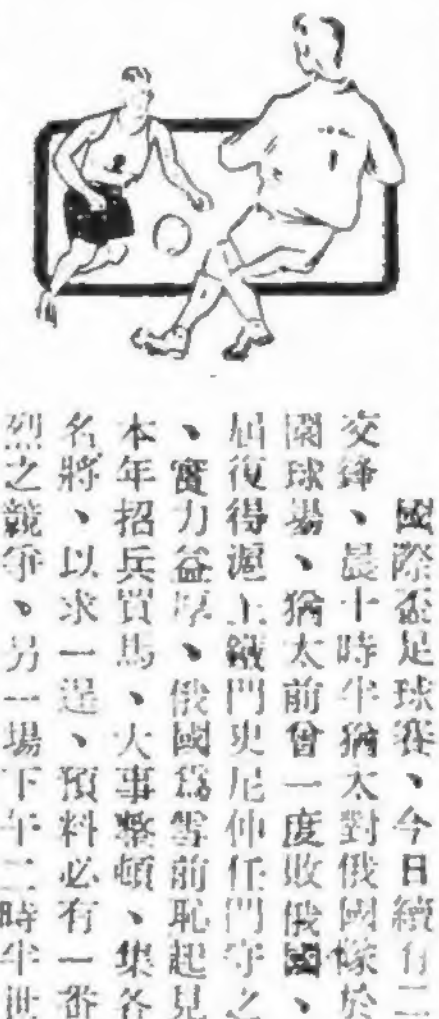 國際盃足球賽、今日續有二
交鋒、晨十時半猶太對俄國隊於
園球場、猶太前曾一度敗俄國、
屆復得滬上鐵門史尼仲任門守之
、實力益厚、俄國爲雪前恥起見
本年招兵買馬、大事整頓、集各
名將、以求一逞、預料必有一番
烈之競爭、另一場下午二時半世